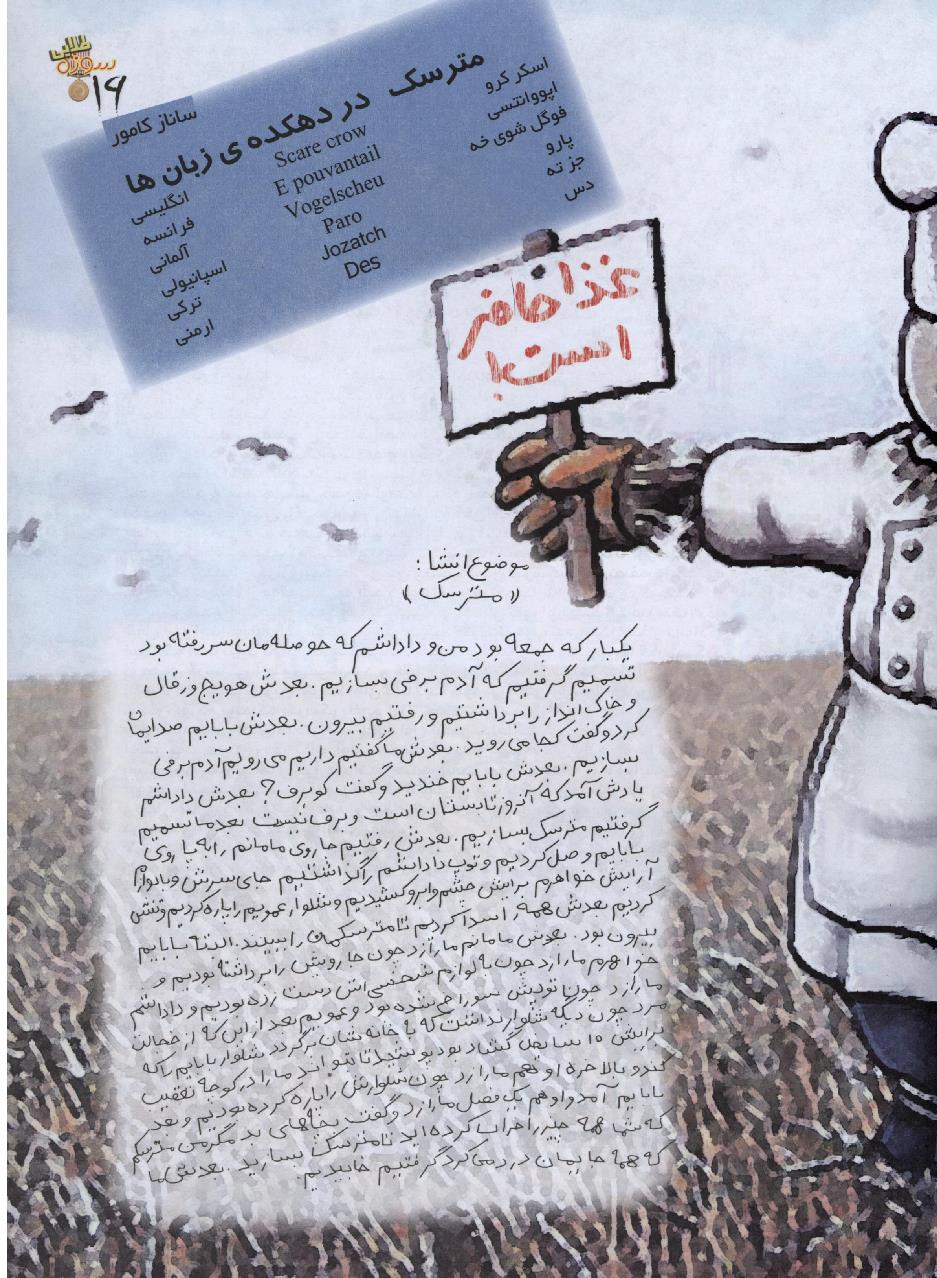 طلایی
سوژه
۱۶
مترسک در دهکده ی زبان ها
ساناز کامور
انگلیسی Scare crow اسکر کرو
فرانسه E pouvantail اپووانتسی
آلمانی Vogelscheu فوگل شوی خه
اسپانیولی Paro پارو
ترکی Jozatch جز ته
ارمنی Des دس
غذا حاضر
است!
موضوع انشا :
«مترسک»
یکبار که جمعه بود من و داداشم که حوصله مان سر رفته بود
تسمیم گرفتیم که آدم برفی بسازیم . بعدش هویج و زقال
و خاک انداز را برداشتیم و رفتیم بیرون . بعدش بابایم صدایمان
کرد و گفت کجا می روید . بعدش ما گفتیم داریم می رویم آدم برفی
بسازیم . بعدش بابایم خندید و گفت کو برف ؟ بعدش داداشم
یادش آمد که آنروز تابستان است و برف نیست بعد ما تسمیم
گرفتیم مترسک بسازیم . بعدش رفتیم جاروی مامانم را به پاروی
بابایم وصل کردیم و توپ داداشم را گذاشتیم جای سرش و با لوازم
آرایش خواهرم برایش چشم و ابرو کشیدیم و شلوار عمویم را پاره کردیم و تنش
کردیم بعدش همه را سدا کردیم تا مترسکمان را ببینند . البته بابایم
بیرون بود . بعدش مامانم ما را زد چون جارویش را برداشته بودیم و
خواهرم ما را زد چون به لوازم شخصی اش دست زده بودیم و داداشم
ما را زد چون توپش سوراخ شده بود و عمویم بعد از این که از خجالت
مرد چون دیگه شلوار نداشت که به خانه شان برگردد شلوار بابایم را که
برایش ۱۰ سایز گشاد بود پوشید تا بتواند ما را در کوچه تعقیب
کند و بالاخره او هم ما را زد چون شلوارش را پاره کرده بودیم و بعد
بابایم آمد و او هم یک فصل ما را زد و گفت بچه های بد مگر من مترسکم
که شما همه چیز را خراب کرده اید تا مترسک بسازید . بعدش ما
که همه جایمان درد می کرد گرفتیم خابیدیم .